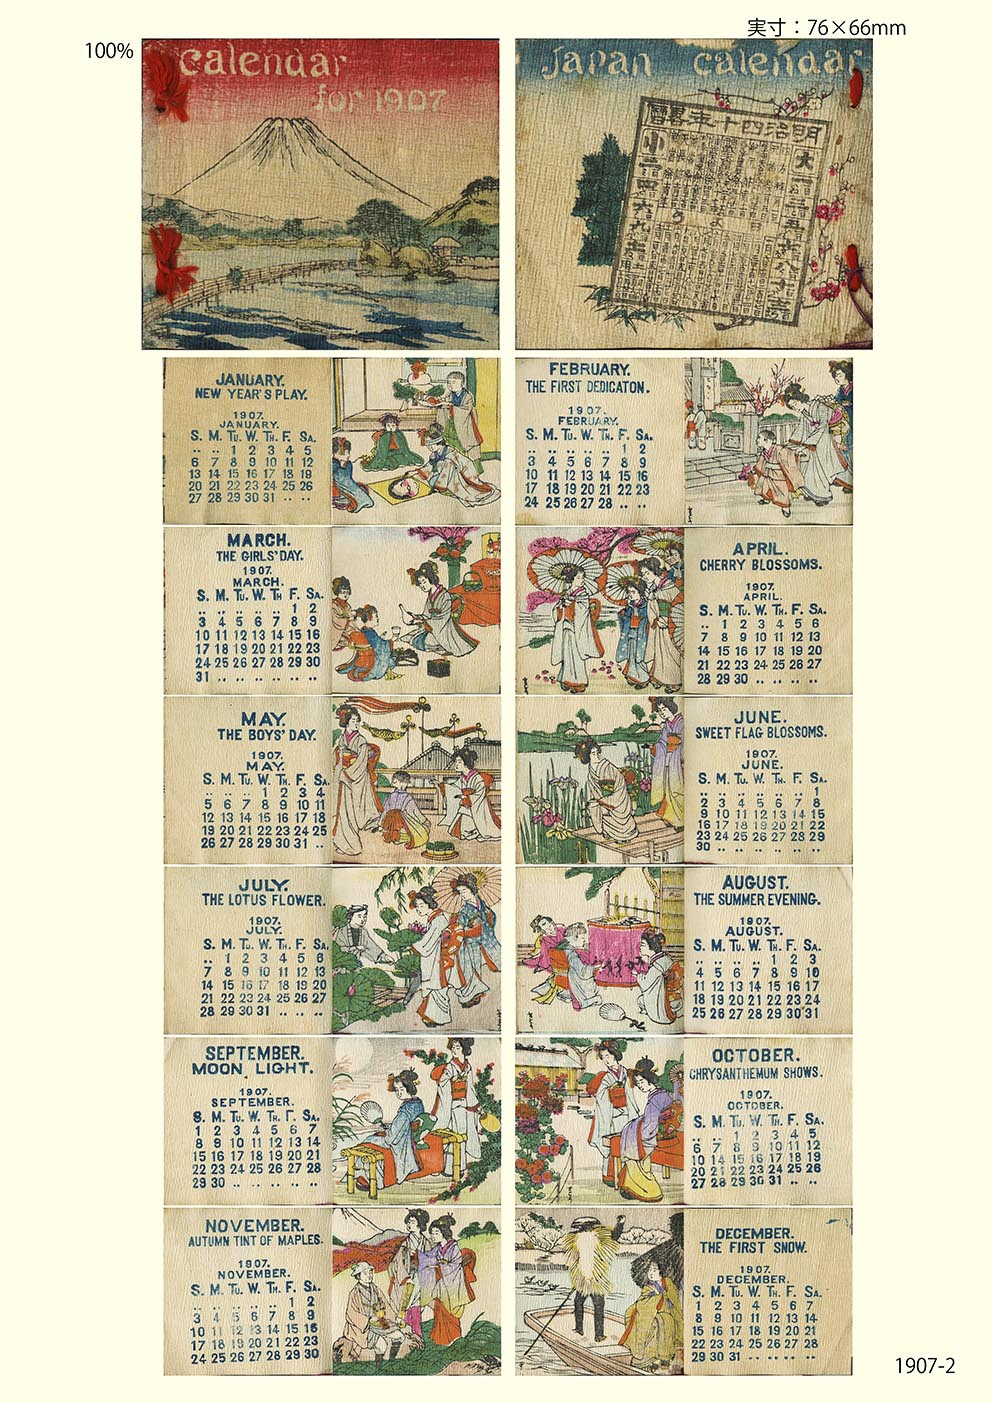 実寸：76×66mm
100%
calendar
for 1907
Japan calendar
明治四十年畧暦
大
小
JANUARY.
NEW YEAR'S PLAY.
1907.
JANUARY.
S. M. TU. W. TH. F. SA.
.. .. 1 2 3 4 5
6 7 8 9 10 11 12
13 14 15 16 17 18 19
20 21 22 23 24 25 26
27 28 29 30 31 .. ..
FEBRUARY.
THE FIRST DEDICATON.
1907.
FEBRUARY.
S. M. TU. W. TH. F. SA.
.. .. .. .. .. 1 2
3 4 5 6 7 8 9
10 11 12 13 14 15 16
17 18 19 20 21 22 23
24 25 26 27 28 .. ..
MARCH.
THE GIRLS' DAY.
1907.
MARCH.
S. M. TU. W. TH F. SA.
.. .. .. .. .. 1 2
3 4 5 6 7 8 9
10 11 12 13 14 15 16
17 18 19 20 21 22 23
24 25 26 27 28 29 30
31 .. .. .. .. .. ..
APRIL.
CHERRY BLOSSOMS.
1907.
APRIL.
S. M. TU. W. TH. F. SA.
.. 1 2 3 4 5 6
7 8 9 10 11 12 13
14 15 16 17 18 19 20
21 22 23 24 25 26 27
28 29 30 .. .. .. ..
MAY.
THE BOYS' DAY.
1907.
MAY.
S. M. TU. W. TH. F. SA.
.. .. .. 1 2 3 4
5 6 7 8 9 10 11
12 13 14 15 16 17 18
19 20 21 22 23 24 25
26 27 28 29 30 31 ..
JUNE.
SWEET FLAG BLOSSOMS.
1907.
JUNE.
S. M. TU. W. TH. F. SA.
.. .. .. .. .. .. 1
2 3 4 5 6 7 8
9 10 11 12 13 14 15
16 17 18 19 20 21 22
23 24 25 26 27 28 29
30 .. .. .. .. .. ..
JULY.
THE LOTUS FLOWER.
1907.
JULY.
S. M. TU. W. TH. F. SA.
.. 1 2 3 4 5 6
7 8 9 10 11 12 13
14 15 16 17 18 19 20
21 22 23 24 25 26 27
28 29 30 31 .. .. ..
AUGUST.
THE SUMMER EVENING.
1907.
AUGUST.
S. M. TU. W. TH. F. SA.
.. .. .. .. 1 2 3
4 5 6 7 8 9 10
11 12 13 14 15 16 17
18 19 20 21 22 23 24
25 26 27 28 29 30 31
SEPTEMBER.
MOON LIGHT.
1907.
SEPTEMBER.
S. M. TU. W. TH. F. SA.
1 2 3 4 5 6 7
8 9 10 11 12 13 14
15 16 17 18 19 20 21
22 23 24 25 26 27 28
29 30 .. .. .. .. ..
OCTOBER.
CHRYSANTHEMUM SHOWS.
1907.
OCTOBER.
S. M. TU. W. TH. F. SA.
.. .. 1 2 3 4 5
6 7 8 9 10 11 12
13 14 15 16 17 18 19
20 21 22 23 24 25 26
27 28 29 30 31 .. ..
NOVEMBER.
AUTUMN TINT OF MAPLES.
1907.
NOVEMBER.
S. M. TU. W. TH. F. SA.
.. .. .. .. .. 1 2
3 4 5 6 7 8 9
10 11 12 13 14 15 16
17 18 19 20 21 22 23
24 25 26 27 28 29 30
DECEMBER.
THE FIRST SNOW.
1907.
DECEMBER.
S. M. TU. W. TH. F. SA.
1 2 3 4 5 6 7
8 9 10 11 12 13 14
15 16 17 18 19 20 21
22 23 24 25 26 27 28
29 30 31 .. .. .. ..
1907-2